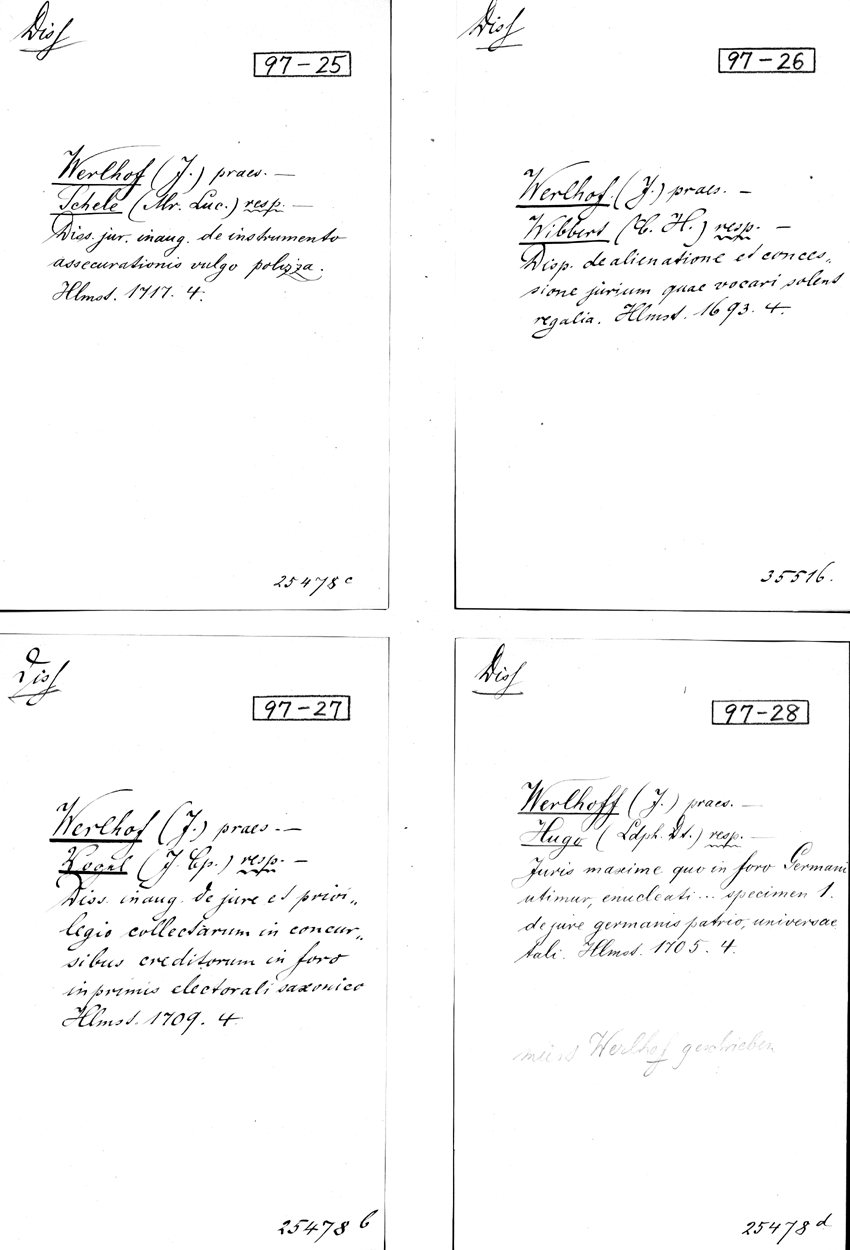 Diss
97-25
Werlhof (J.) praes. —
Schele (Mr. Luc.) resp. —
Diss. jur. inaug. de instrumento
assecurationis vulgo polizza.
Hlmst. 1717. 4.
25478 c
Diss
97-26
Werlhof. (J.) praes. —
Wibbert (C. H.) resp. —
Disp. de alienatione et conces„
sione jurium quae vocari solent
regalia. Hlmst. 1693. 4.
35516.
Diss
97-27
Werlhof (J.) praes. —
Vogel (J. Cp.) resp. —
Diss. inaug. de jure et privi„
legio collectarum in concur„
sibus creditorum in foro
inprimis electorali saxonico
Hlmst. 1709. 4.
25478 b
Diss
97-28
Werlhoff (J.) praes. —
Hugo (Ldph. Dt.) resp. —
Juris maxime quo in foro Germani
utimur, enucleati ... specimen 1.
de jure germanis patrio, universae
tali. Hlmst. 1705. 4.
meist Werlhof geschrieben
25478 d